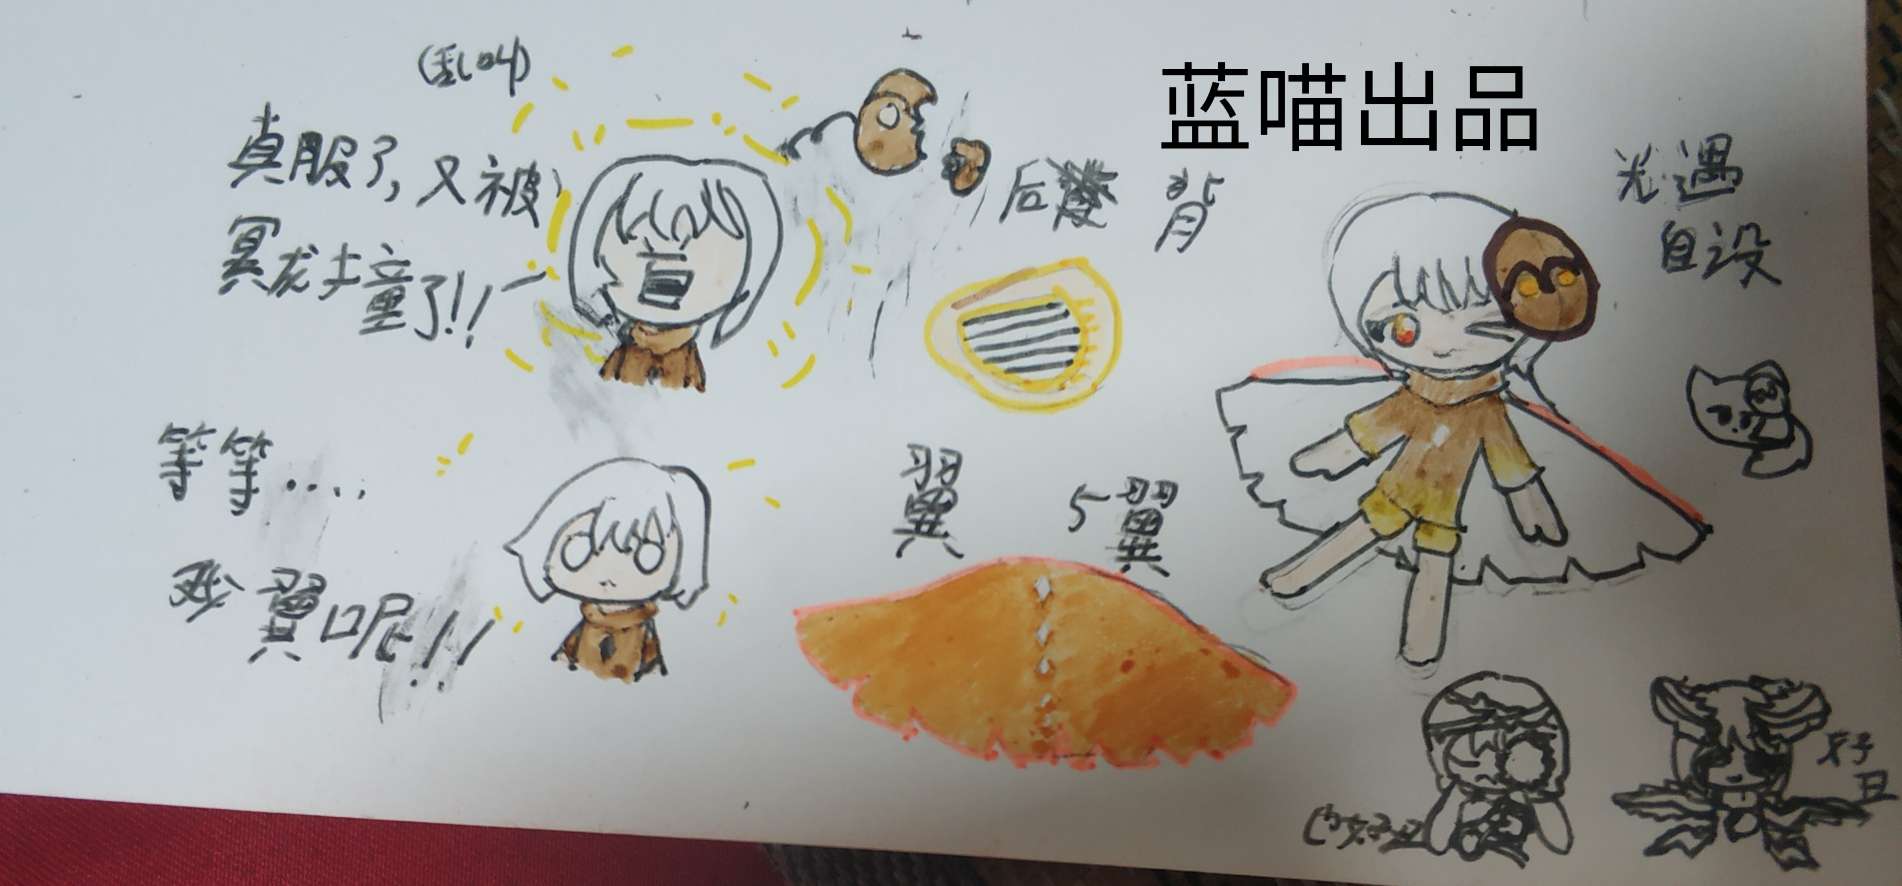 (乱叫)
真服了,又被
冥龙撞了!!
等等....
我翼呢!!
蓝喵出品
后 背
翼 5翼
光遇
自设